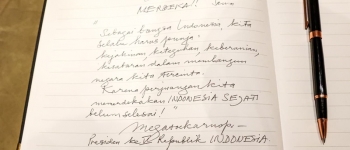 MERDEKA!!
"Sebagai bangsa Indonesia, kita
selalu harus punya
keteguhan keberanian,
dalam membangun
negara kita tercinta.
Karena perjuangan kita
memerdekakan INDONESIA SEJATI
belum selesai!
Megawatisoekarnoputri
Presiden ke V Republik INDONESIA.